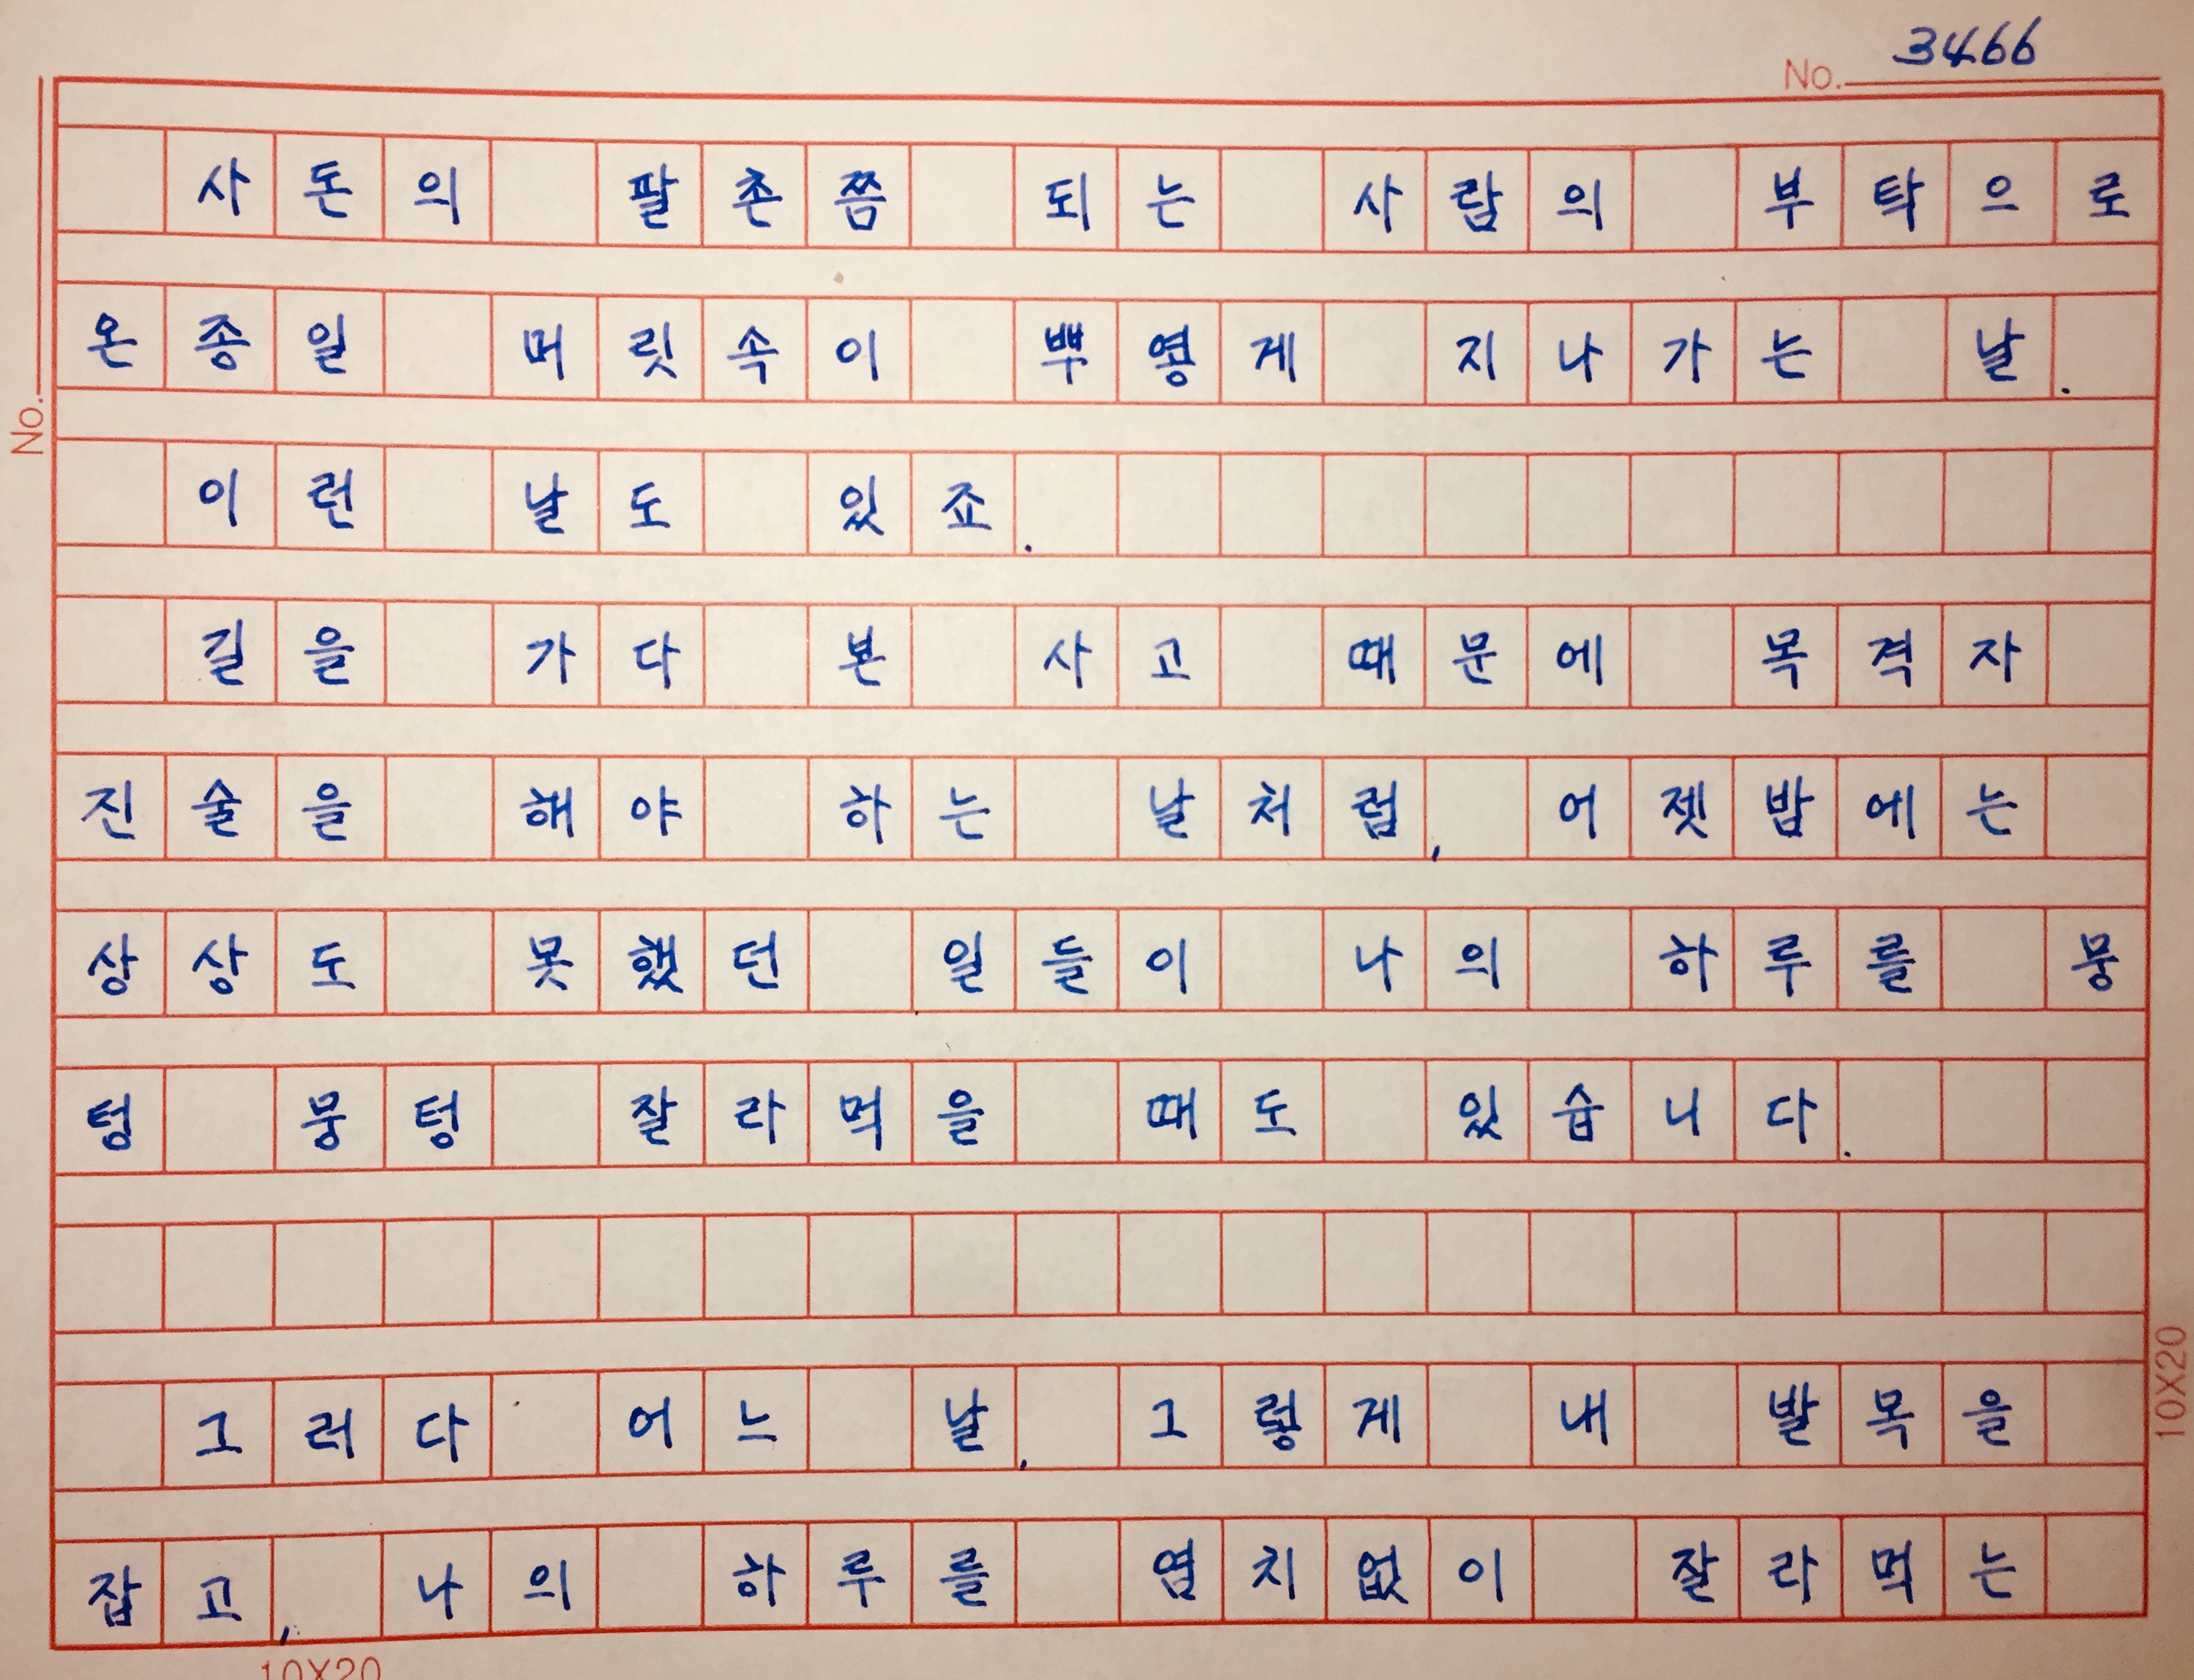 No. 3466
사돈의 팔촌쯤 되는 사람의 부탁으로
온종일 머릿속이 뿌옇게 지나가는 날.
이런 날도 있죠.
길을 가다 본 사고 때문에 목격자
진술을 해야 하는 날처럼, 어젯밤에는
상상도 못했던 일들이 나의 하루를 뭉
텅 뭉텅 잘라먹을 때도 있습니다.
그러다 어느 날, 그렇게 내 발목을
잡고, 나의 하루를 염치없이 잘라먹는
No.
10X20
10X20